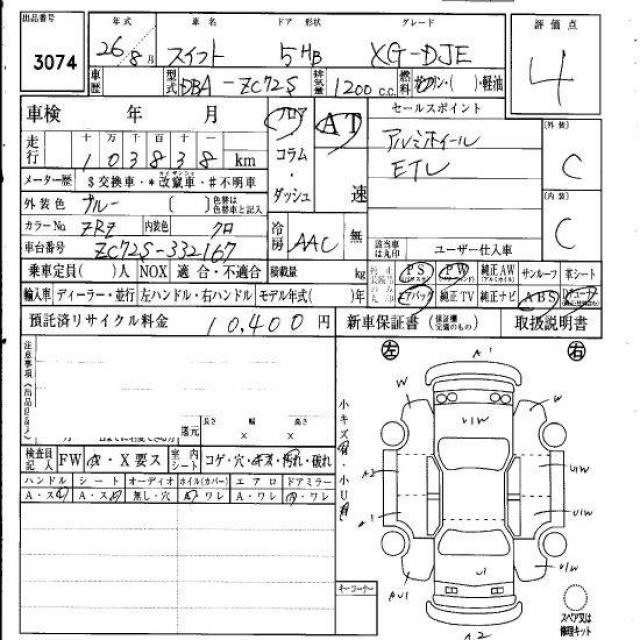 出品番号 年式 車名 ドア形状 グレード 評価点
3074 26/8月 スイフト 5HB XG-DJE 4
車歴 型式 DBA-ZC72S 排気量 1200 c.c. 燃料 ガソリン・( )・軽油
車検 年 月 フロア AT セールスポイント
走行 十 万 千 百 十 一 コラム・ アルミホイール [外装]
1 0 3 8 3 8 km ダッシュ 速 ETC C
メーター歴 $交換車・*改竄車・#不明車
外装色 ブルー ( ) 色替は色替車と記入 [内装]
カラーNo. ZRZ 内装色 クロ 冷房 AAC 無 C
車台番号 ZC72S-332167 該当車は丸印 ユーザー仕入車
乗車定員( )人 NOX 適合・不適合 積載量 kg PS PW 純正AW サンルーフ 革シート
輸入車 ディーラー・並行 左ハンドル・右ハンドル モデル年式( )年 エアバッグ 純正TV 純正ナビ ABS
預託済リサイクル料金 10,400円 新車保証書 (保証欄完備のもの) 取扱説明書
注意事項《出品店記入》 左 右
A1
W W
U1W
小キズ有・小U有
長さ 幅 高さ
還元 × ×
検査員記入 FW A・X要ス 室内シート コゲ・穴・キズ・汚れ・破れ
A2 U1W
ハンドル シート オーディオ ホイル(カバー) エアロ ドアミラー
A・ス A・ス 無し・穴 A・ワレ A・ワレ A・ワレ
A1 U1W
U1 U1W
AU1
キーコーナー
スペア又は修理キット
A2